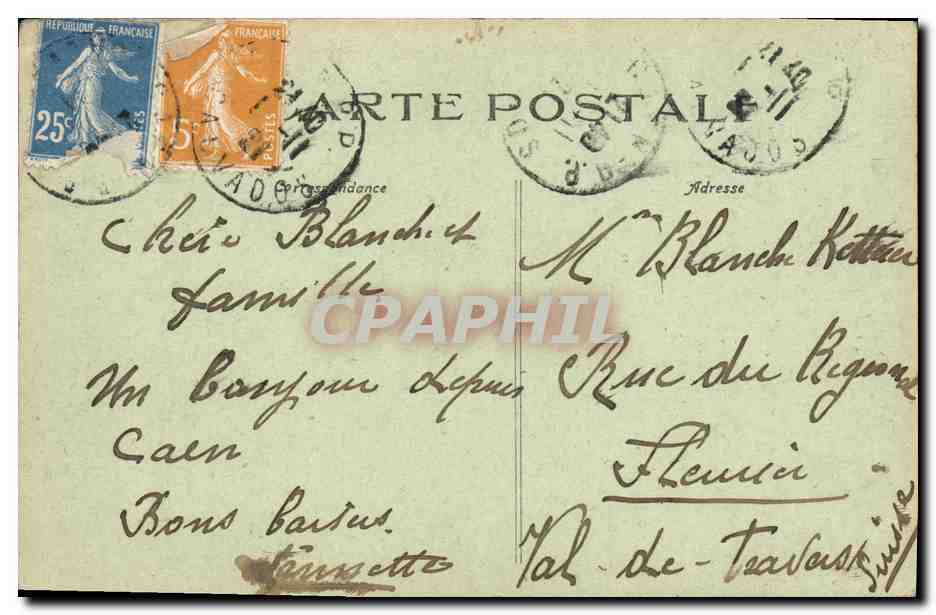 REPUBLIQUE FRANÇAISE
25c
REPUBLIQUE FRANÇAISE
5c
POSTES
CARTE POSTALE
Correspondance
Adresse
Chère Blanche et
famille
Un bonjour depuis
Caen
Bons baisers.
Mme Blanche
Rue du Régional
Fleurier
Val-de-Travers
Suisse
CPAPHIL